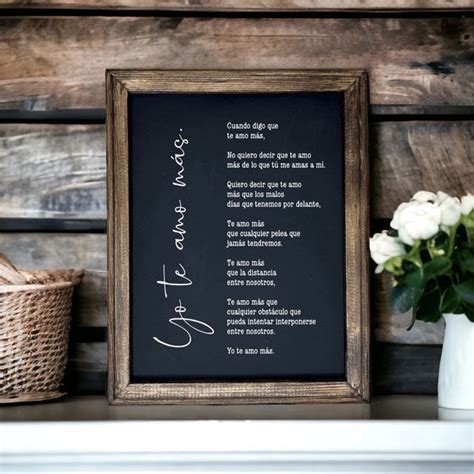 Yo te amo más.
Cuando digo que
te amo más,
No quiero decir que te amo
más de lo que tú me amas a mí.
Quiero decir que te amo
más que los malos
días que tenemos por delante,
Te amo más
que cualquier pelea que
jamás tendremos.
Te amo más
que la distancia
entre nosotros,
Te amo más que
cualquier obstáculo que
pueda intentar interponerse
entre nosotros.
Yo te amo más.